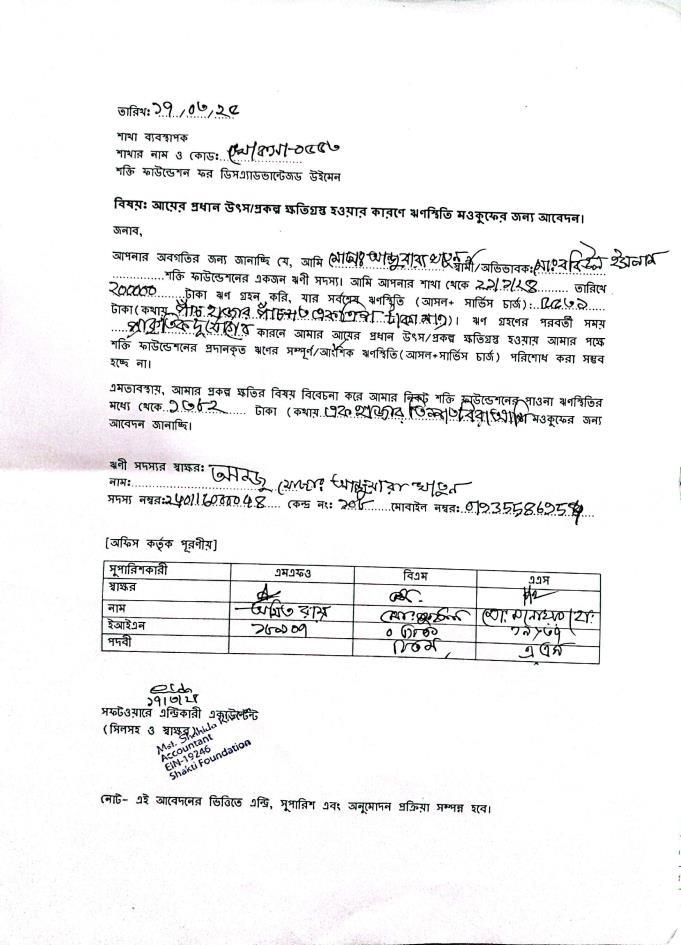 তারিখ: ১৭/০৩/২৫
শাখা ব্যবস্থাপক
শাখার নাম ও কোড:
শক্তি ফাউন্ডেশন ফর ডিসএ্যাডভান্টেজড উইমেন
বিষয়: আয়ের প্রধান উৎস/প্রকল্প ক্ষতিগ্রস্থ হওয়ার কারণে ঋণস্থিতি মওকুফের জন্য আবেদন।
জনাব,
আপনার অবগতির জন্য জানাচ্ছি যে, আমি মোছাঃ আঞ্জুয়ারা খাতুন স্বামী/অভিভাবক: মোঃ রবিউল ইসলাম
শক্তি ফাউন্ডেশনের একজন ঋণী সদস্য। আমি আপনার শাখা থেকে তারিখে
টাকা ঋণ গ্রহন করি, যার সর্বশেষ ঋণস্থিতি (আসল+ সার্ভিস চার্জ):
টাকা(কথায় পাঁচ হাজার পাঁচশত একত্রিশ টাকা মাত্র)। ঋণ গ্রহণের পরবর্তী সময়
প্রাকৃতিক দুর্যোগের কারনে আমার আয়ের প্রধান উৎস/প্রকল্প ক্ষতিগ্রস্থ হওয়ায় আমার পক্ষে
শক্তি ফাউন্ডেশনের প্রদানকৃত ঋণের সম্পূর্ণ/আংশিক ঋণস্থিতি(আসল+সার্ভিস চার্জ) পরিশোধ করা সম্ভব
হচ্ছে না।
এমতাবস্থায়, আমার প্রকল্প ক্ষতির বিষয় বিবেচনা করে আমার নিকট শক্তি ফাউন্ডেশনের পাওনা ঋণস্থিতির
মধ্যে থেকে ১৩৮২ টাকা (কথায় এক হাজার তিনশত বিরাশি মওকুফের জন্য
আবেদন জানাচ্ছি।
ঋণী সদস্যর স্বাক্ষর: আনজু
নাম: মোছাঃ আঞ্জুয়ারা খাতুন
সদস্য নম্বর: কেন্দ্র নং: মোবাইল নম্বর:
[অফিস কর্তৃক পূরণীয়]
সুপারিশকারী এমএফও বিএম এএস
স্বাক্ষর
নাম অমিত রায়
ইআইএন
পদবী বিএম এ এস
১৭/৩/২৫
সফটওয়ারে এন্ট্রিকারী একাউন্টেন্ট
(সিলসহ ও স্বাক্ষর)
Mst. Shahida
Accountant
EIN-19246
Shakti Foundation
নোট- এই আবেদনের ভিত্তিতে এন্ট্রি, সুপারিশ এবং অনুমোদন প্রক্রিয়া সম্পন্ন হবে।